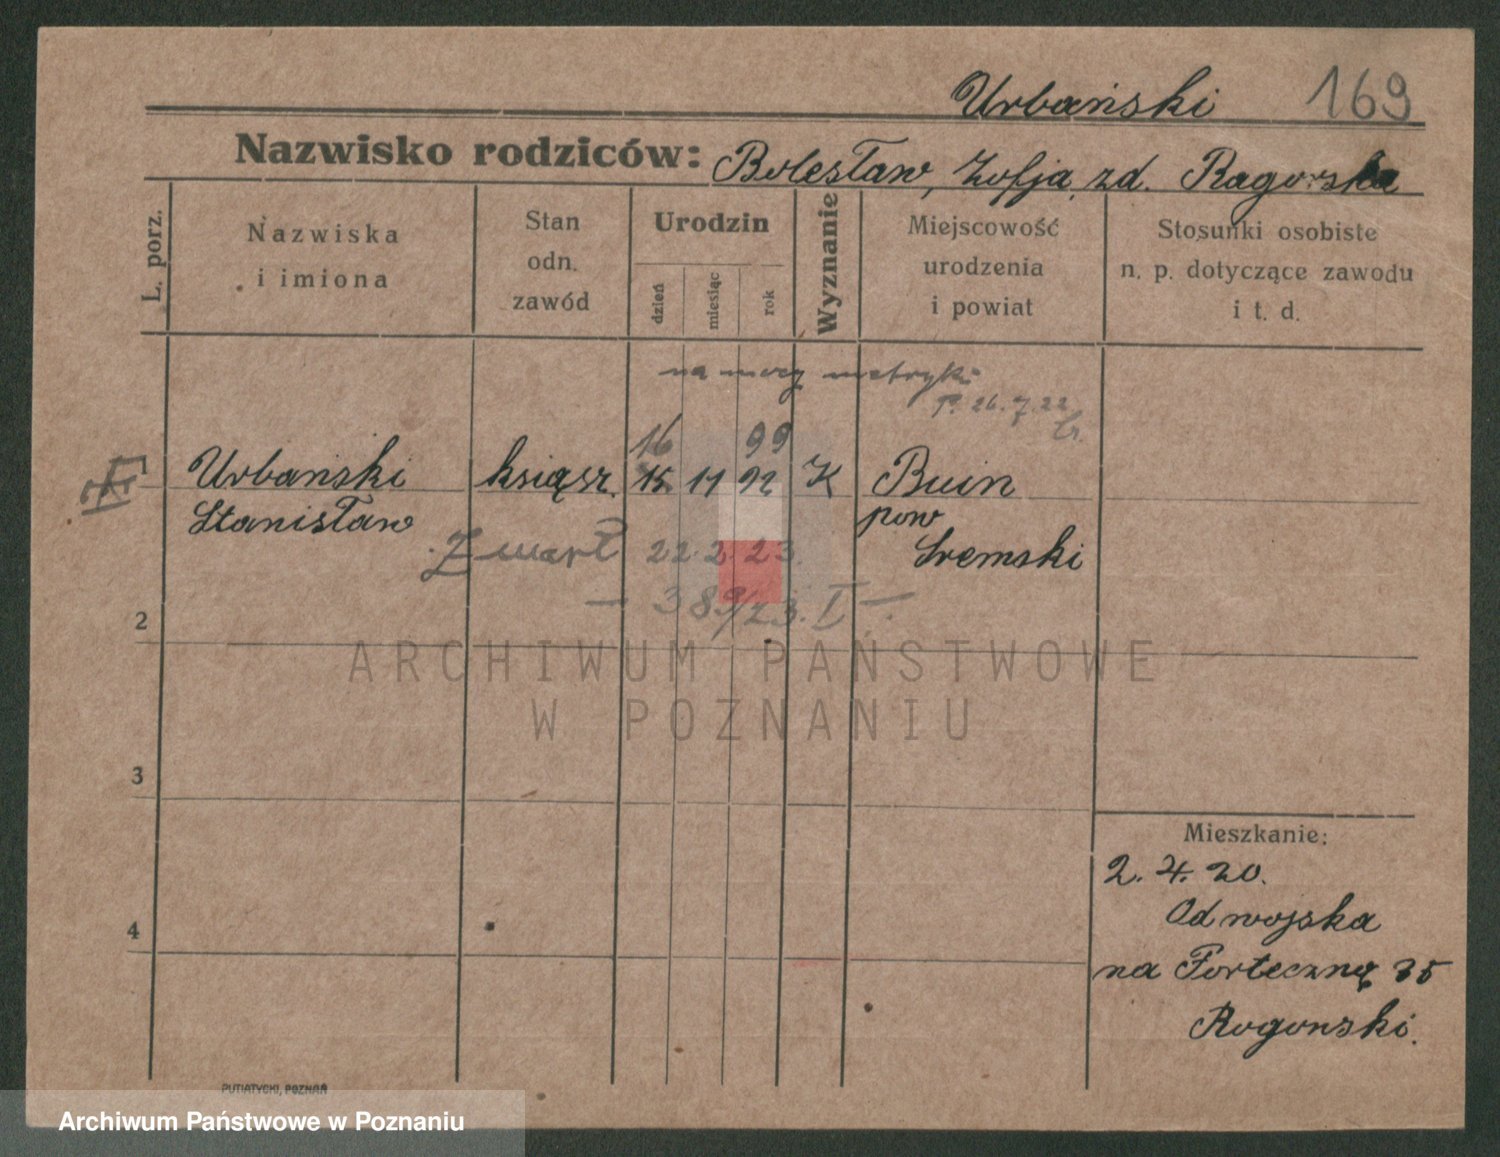 Urbański 169
Nazwisko rodziców: Bolesław, Zofja, zd. Ragorska
L. porz.
Nazwiska
i imiona
Stan
odn.
zawód
Urodzin
dzień
miesiąc
rok
Wyznanie
Miejscowość
urodzenia
i powiat
Stosunki osobiste
n. p. dotyczące zawodu
i t. d.
na mocy metryki
P. 26.7.22
16 99
1 Urbański książ. 15 11 92 K Buin
Stanisław pow
Zmarł 22.2.23. Sremski
— 389/23. I —
2
ARCHIWUM PAŃSTWOWE
W POZNANIU
3
Mieszkanie:
2. 4. 20.
4
Od wojska
na Forteczną 35
Rogonski.
PUTIATYCKI, POZNAŃ
Archiwum Państwowe w Poznaniu